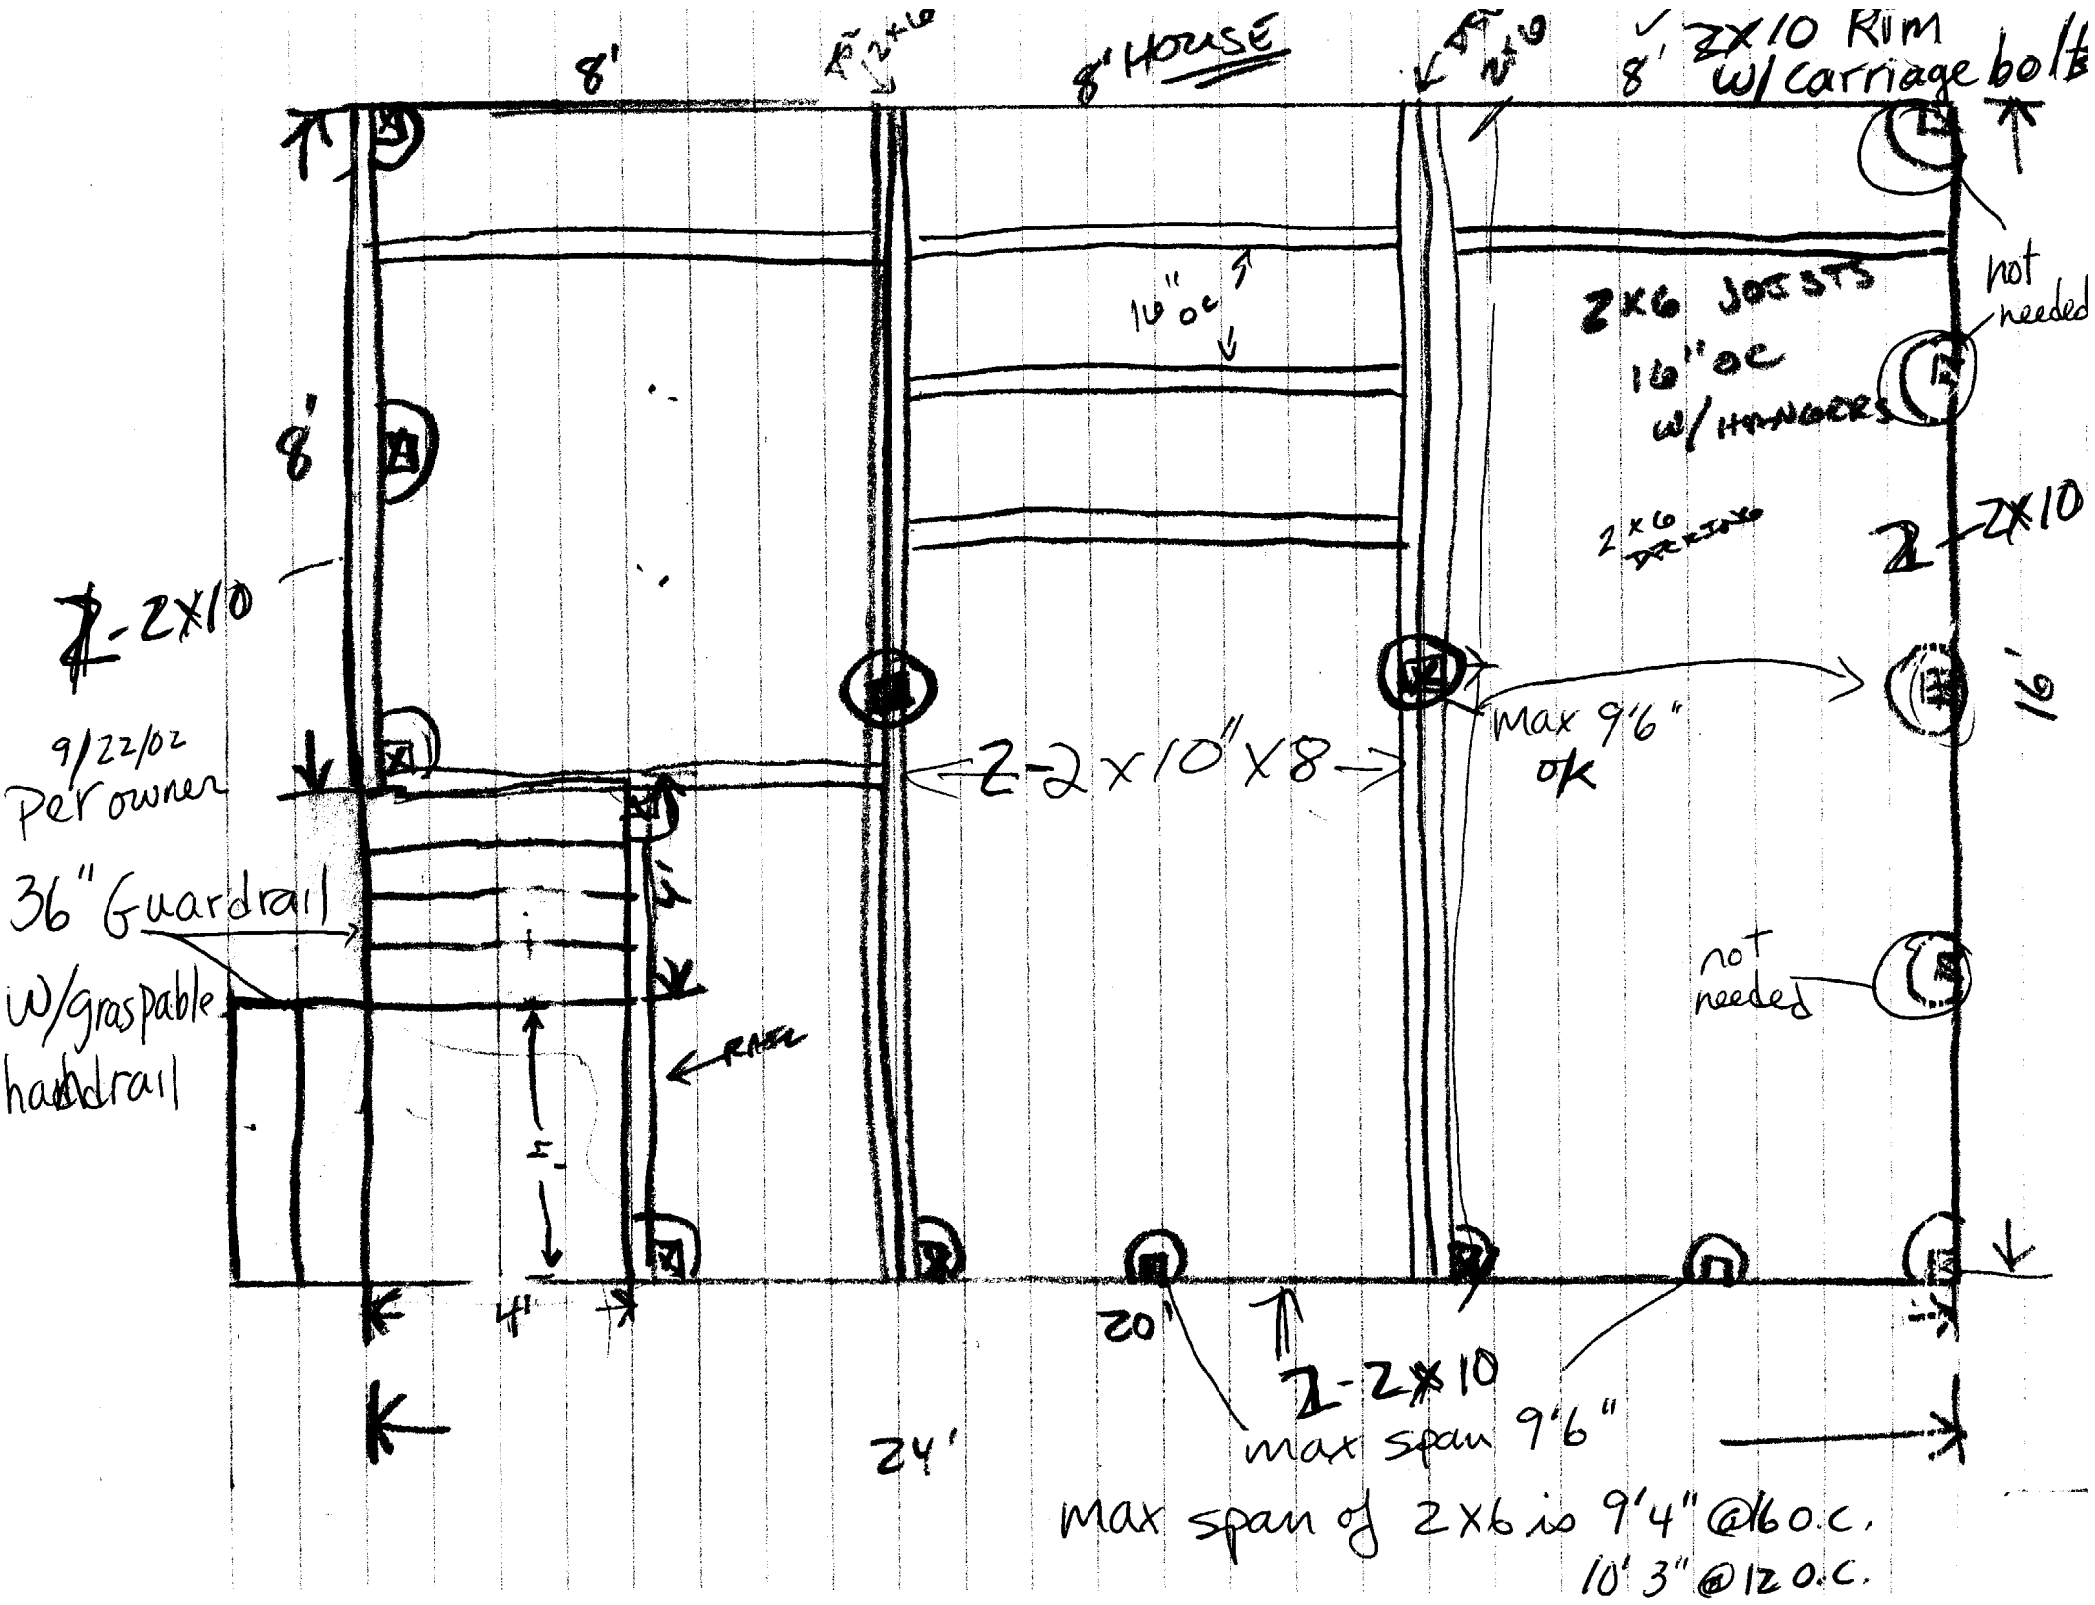 8'
2x6
8' HOUSE
2x6
✓ 2x10 Rim
8' w/ carriage bolts
16" OC
2x6 JOISTS
16" OC
W/ HANGERS
not
needed
8'
2x6
2-2x10
2-2x10
16'
9/22/02
Per owner
2-2x10"x8
max 9'6"
OK
36" Guardrail
w/graspable
handrail
4'
RAIL
not
needed
4'
20'
2-2x10
max span 9'6"
24'
max span of 2x6 is 9'4" @16 o.c.
10'3" @12 o.c.